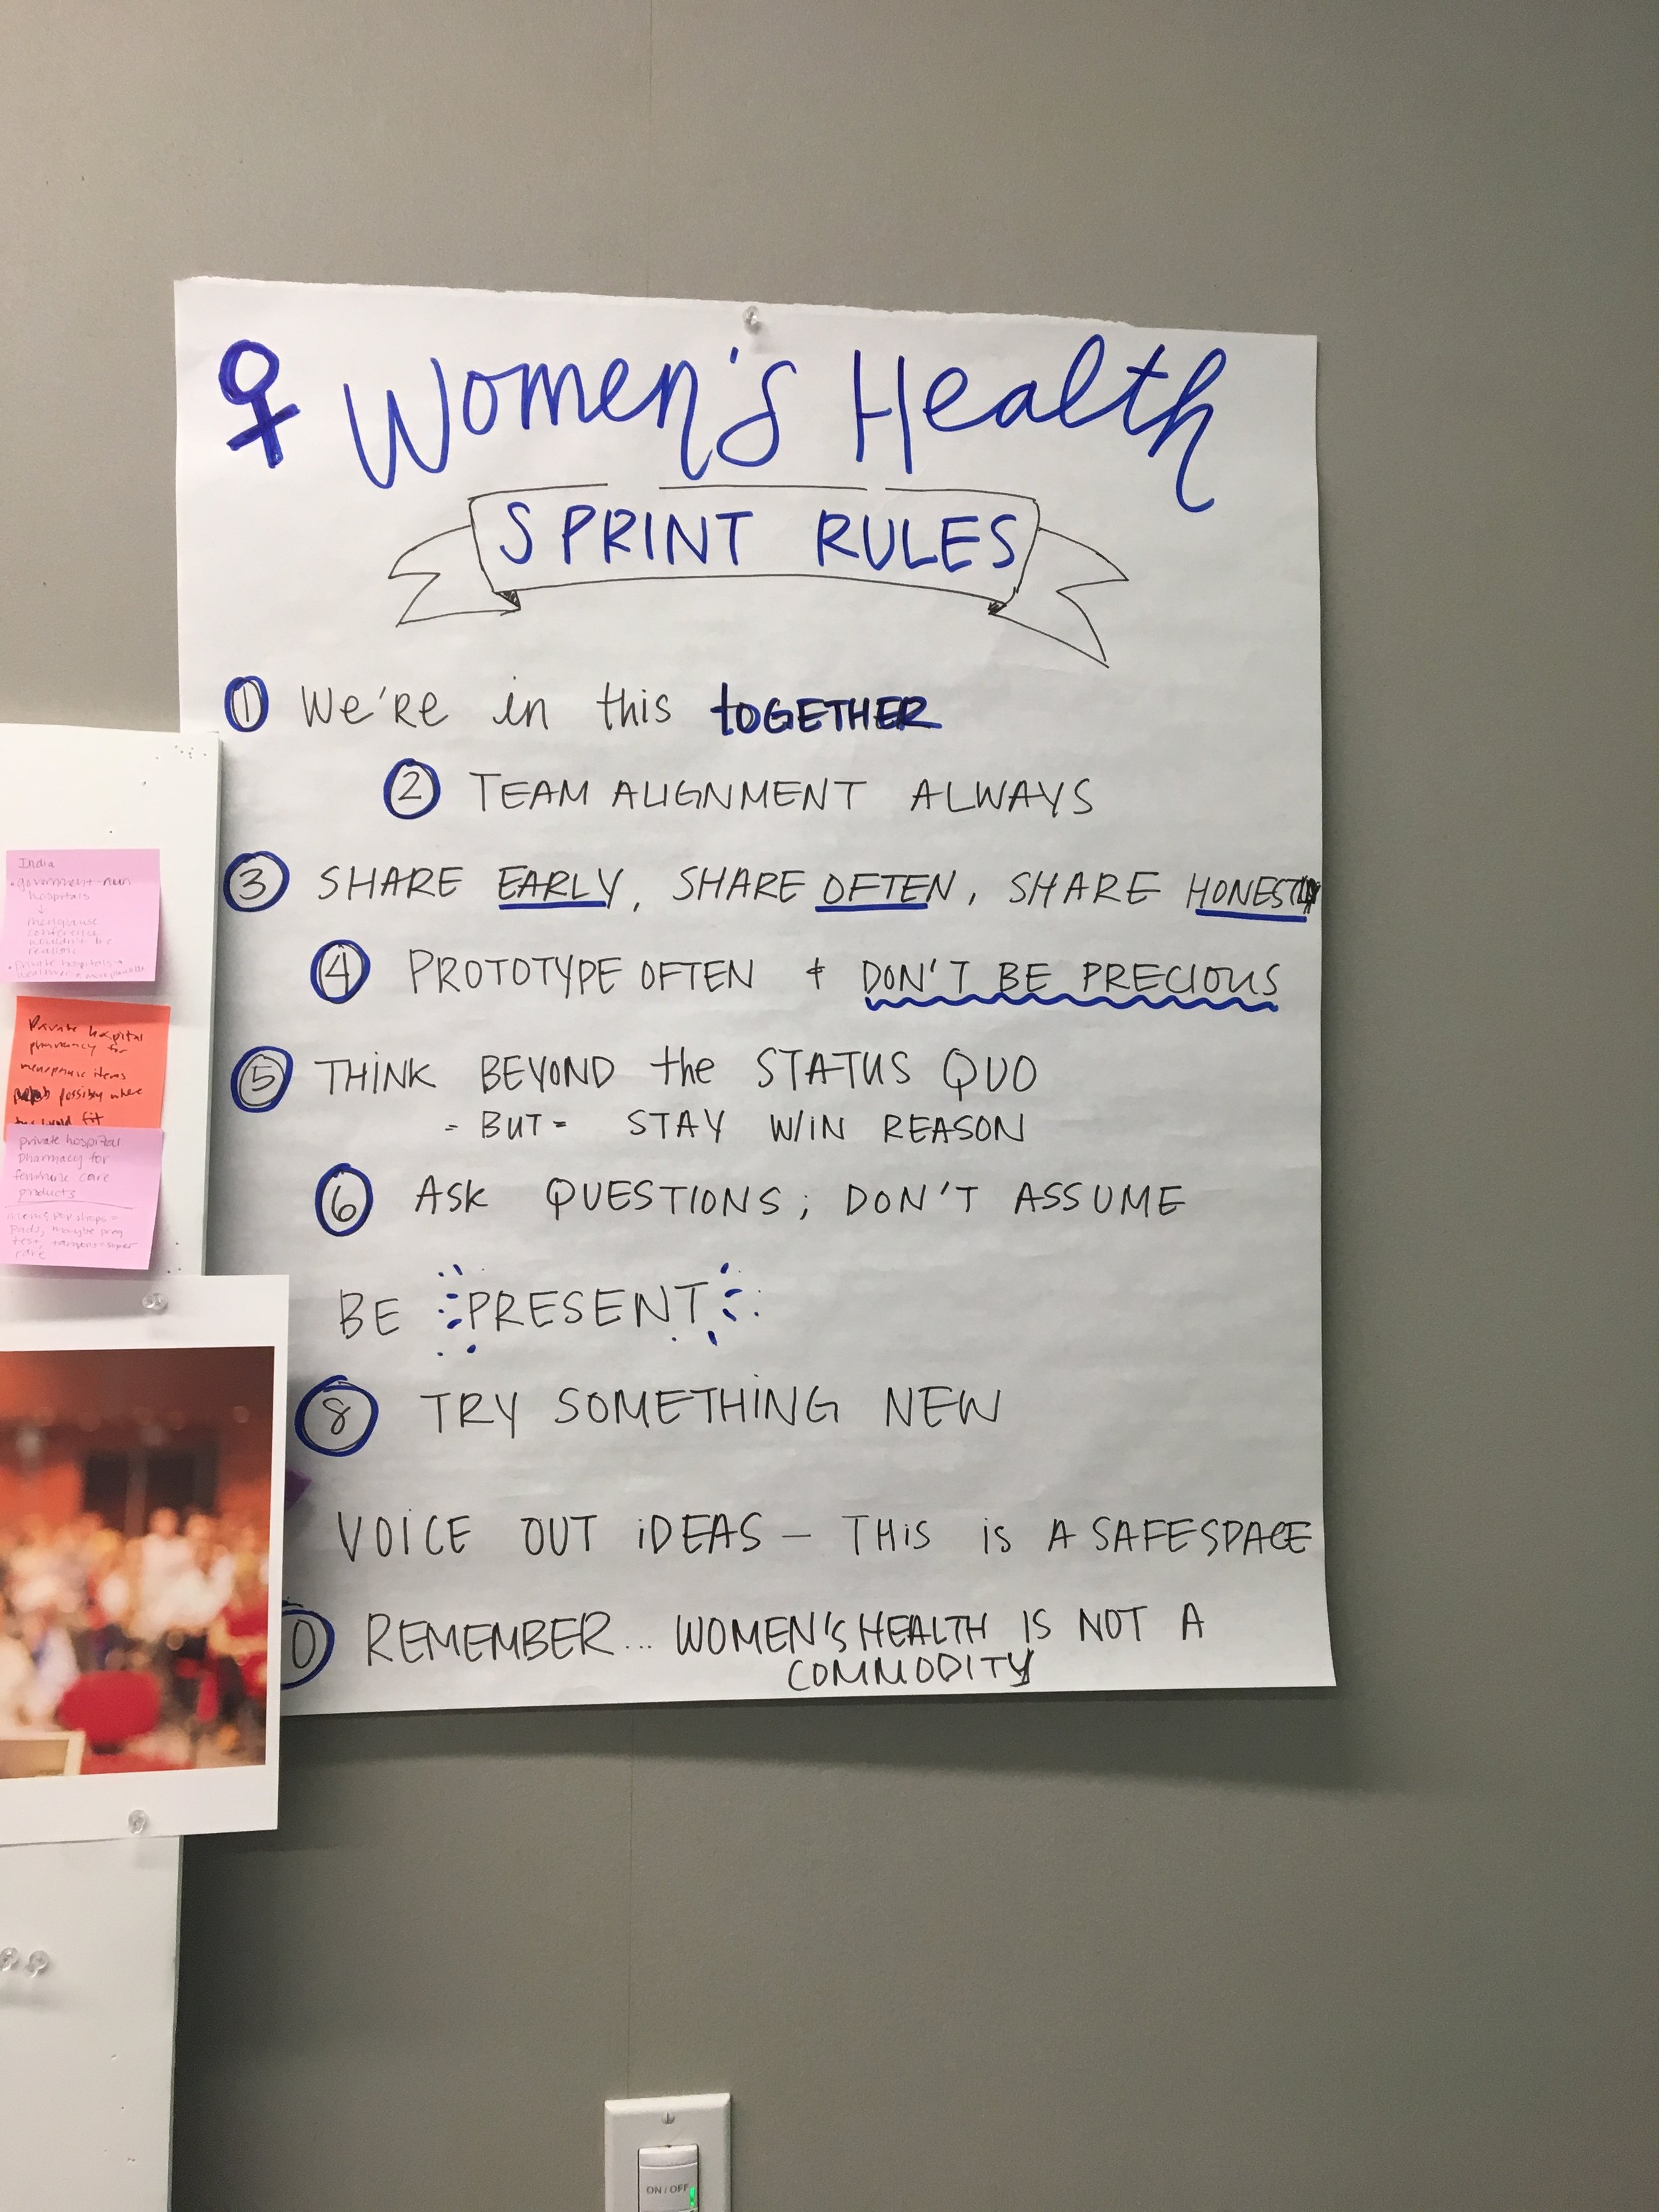 ♀ Women's Health
SPRINT RULES
① We're in this toGETHER
② TEAM ALIGNMENT ALWAYS
③ SHARE EARLY, SHARE OFTEN, SHARE HONESTLY
④ PROTOTYPE OFTEN + DON'T BE PRECIOUS
⑤ THINK BEYOND the STATUS QUO
- BUT - STAY W/IN REASON
⑥ ASK QUESTIONS; DON'T ASSUME
BE PRESENT
⑧ TRY SOMETHING NEW
VOICE OUT iDEAS — THis is A SAFE SPACE
0 REMEMBER... WOMEN'S HEALTH IS NOT A
COMMODITY
India
• government-run
hospitals
↓
menopause
conference
wouldn't be
realistic
• private hospitals →
Private hospital
pharmacy for
menopause items
possibly where
fit
private hospital
pharmacy for
feminine care
products
pads, maybe preg
test, tampons = super
rare
ON / OFF